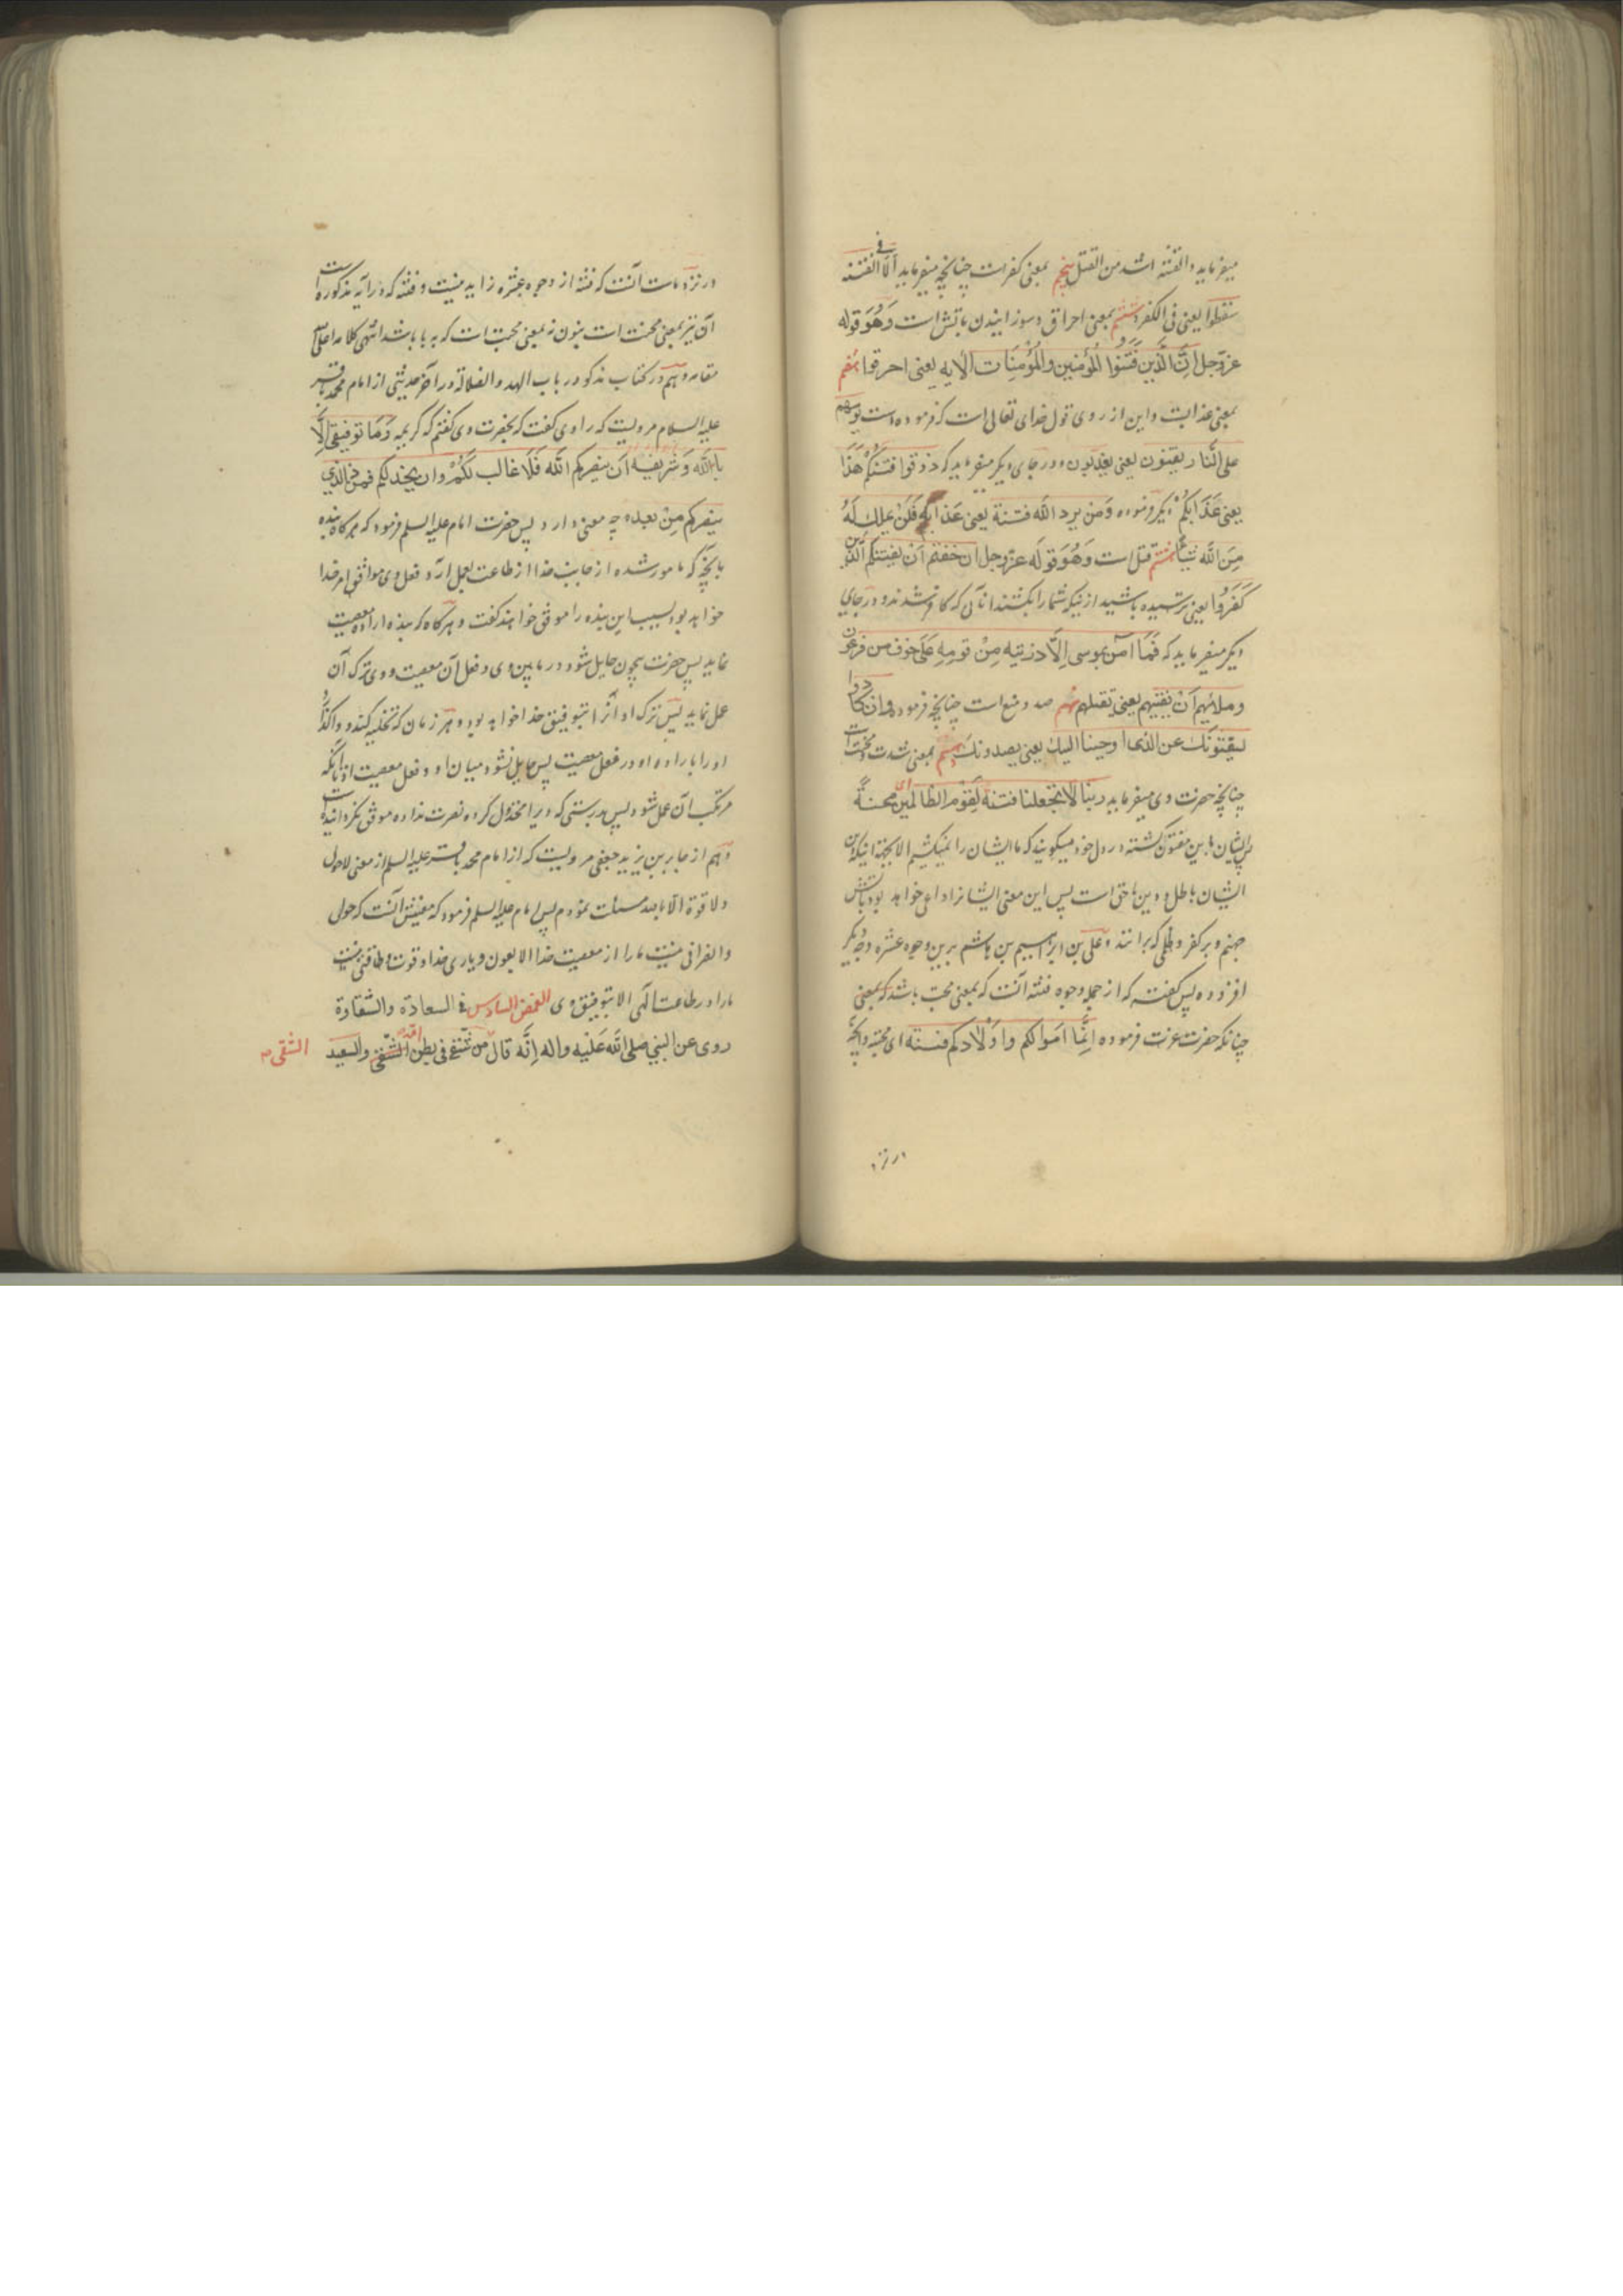 میفرماید والفتنة اشد من القتل پنجم بمعنی کفراست چنانچه میفرماید الا فی الفتنة
سقطوا یعنی فی الکفر ششم بمعنی احراق و سوزانیدن باتش است وَهُوَ قوله
عزّوجل اِنَّ الَّذین فَتَنُوا المُؤمنین والمُؤمِنَات الآیه یعنی احرقوا هفتم
بمعنی عذابست و این از روی قول خدای تعالی است که فرموده است یوم هم
علی النّار یفتنون یعنی یعذّبون و در جای دیگر میفرماید که ذوقوا فتنتکُمْ هَذَا
یعنی عَذَابَکُمْ دیگر فرموده وَمَن یرد الله فتنة یعنی عَذابه فَلَنْ یملك لَهُ
مِنَ الله شیئًا هشتم قتل است وَهُوَ قوله عزّوجل ان خفتم اَنْ یفتنکم الّذین
کَفَرُوا یعنی ترسیده باشید از اینکه شما را بکشند انانی که کافر شدند و در جای
دیگر میفرماید که فَمَا آمَن بموسی اِلَّا ذریته مِنْ قومِهِ عَلَی خوف من فرعون
وملائهم اَنْ یفتنهم یعنی یقتلهم نهم صد و منع است چنانچه فرموده وان کادوا
لیفتنونك عن الذی اوحینا الیك یعنی یصدونك دهم بمعنی شدت و محنت است
چنانچه حضرت وی میفرماید ربنا لا تجعلنا فتنة لِقَوْم الظالمین ای محنةً
پس ایشان باین مفتون گشته در دل خود میگویند که ما ایشان را نمیکشیم الا بجهة اینکه دین
ایشان باطل و دین ما حق است پس این معنی ایشانرا داعی خواهد بود باتش
جهنم و بر کفر و ظلمی که برانند و علی بن ابراهیم بن هاشم بر این وجوه عشره وجه دیگر
افزوده پس گفته که از جمله وجوه فتنه آنست که بمعنی محبت باشد که بمعنی
چنانکه حضرت عزت فرموده اِنَّمَا اموالکم واَوْلادکم فتنة ای محبة و آنچه
در نزد
در نزد ماست آنست که فتنه از وجوه عشره زاید نیست و فتنه که در آیه مذکوره است
آن نیز بمعنی محنت است بنون نه بمعنی محبت است که به با باشد انتهی کلامه اعلی الله
مقامه و هم در کتاب مذکور در باب الهدی والضلالة در آخر حدیثی از امام محمد باقر
علیه السلام مرویست که راوی گفت که بحضرت وی گفتم که کریمه وَمَا توفیقی اِلَّا
بالله وَ شریفه اَن ینصرکم الله فَلَا غالب لَکُمْ وان یخذلکم فمن ذا الذی
ینصرکم مِنْ بعده چه معنی دارد پس حضرت امام علیه السلم فرمود که هرگاه بنده
بانچه که مامور شده از جانب خدا از طاعت بعمل ارد و فعل وی موافق امر خدا
خواهد بود بسبب این بنده را موفق خواهند گفت و هرگاه که بنده اراده معصیت
نماید پس حضرت بیچون حایل شود در مابین وی و فعل آن معصیت و وی ترک آن
عمل نماید پس ترک او انرا بتوفیق خدا خواهد بود و هر زمان که تخلیه کند و واگذارد
او را باراده او در فعل معصیت پس حایل نشود میان او و فعل معصیت او تا آنکه
مرتکب آن عمل شود پس بدرستی که ویرا مخذول کرده نصرت نداده موفق نگردانیده است
و هم از جابر بن یزید جعفی مرویست که از امام محمد باقر علیه السلم از معنی لا حول
ولا قوة الا بالله مسئلت نمودم پس امام علیه السلم فرمود که معنیش آنست که حولی
و انصرافی نیست ما را از معصیت خدا الا بعون و یاری خدا و قوت و طاقتی نیست
ما را در طاعت الهی الا بتوفیق وی الغمض السادس فی السعادة والشقاوة
روی عن النبی صلی الله عَلَیه واله اِنَّه قال من شقی فی بطن امّه الشقی والسعید
الشقی